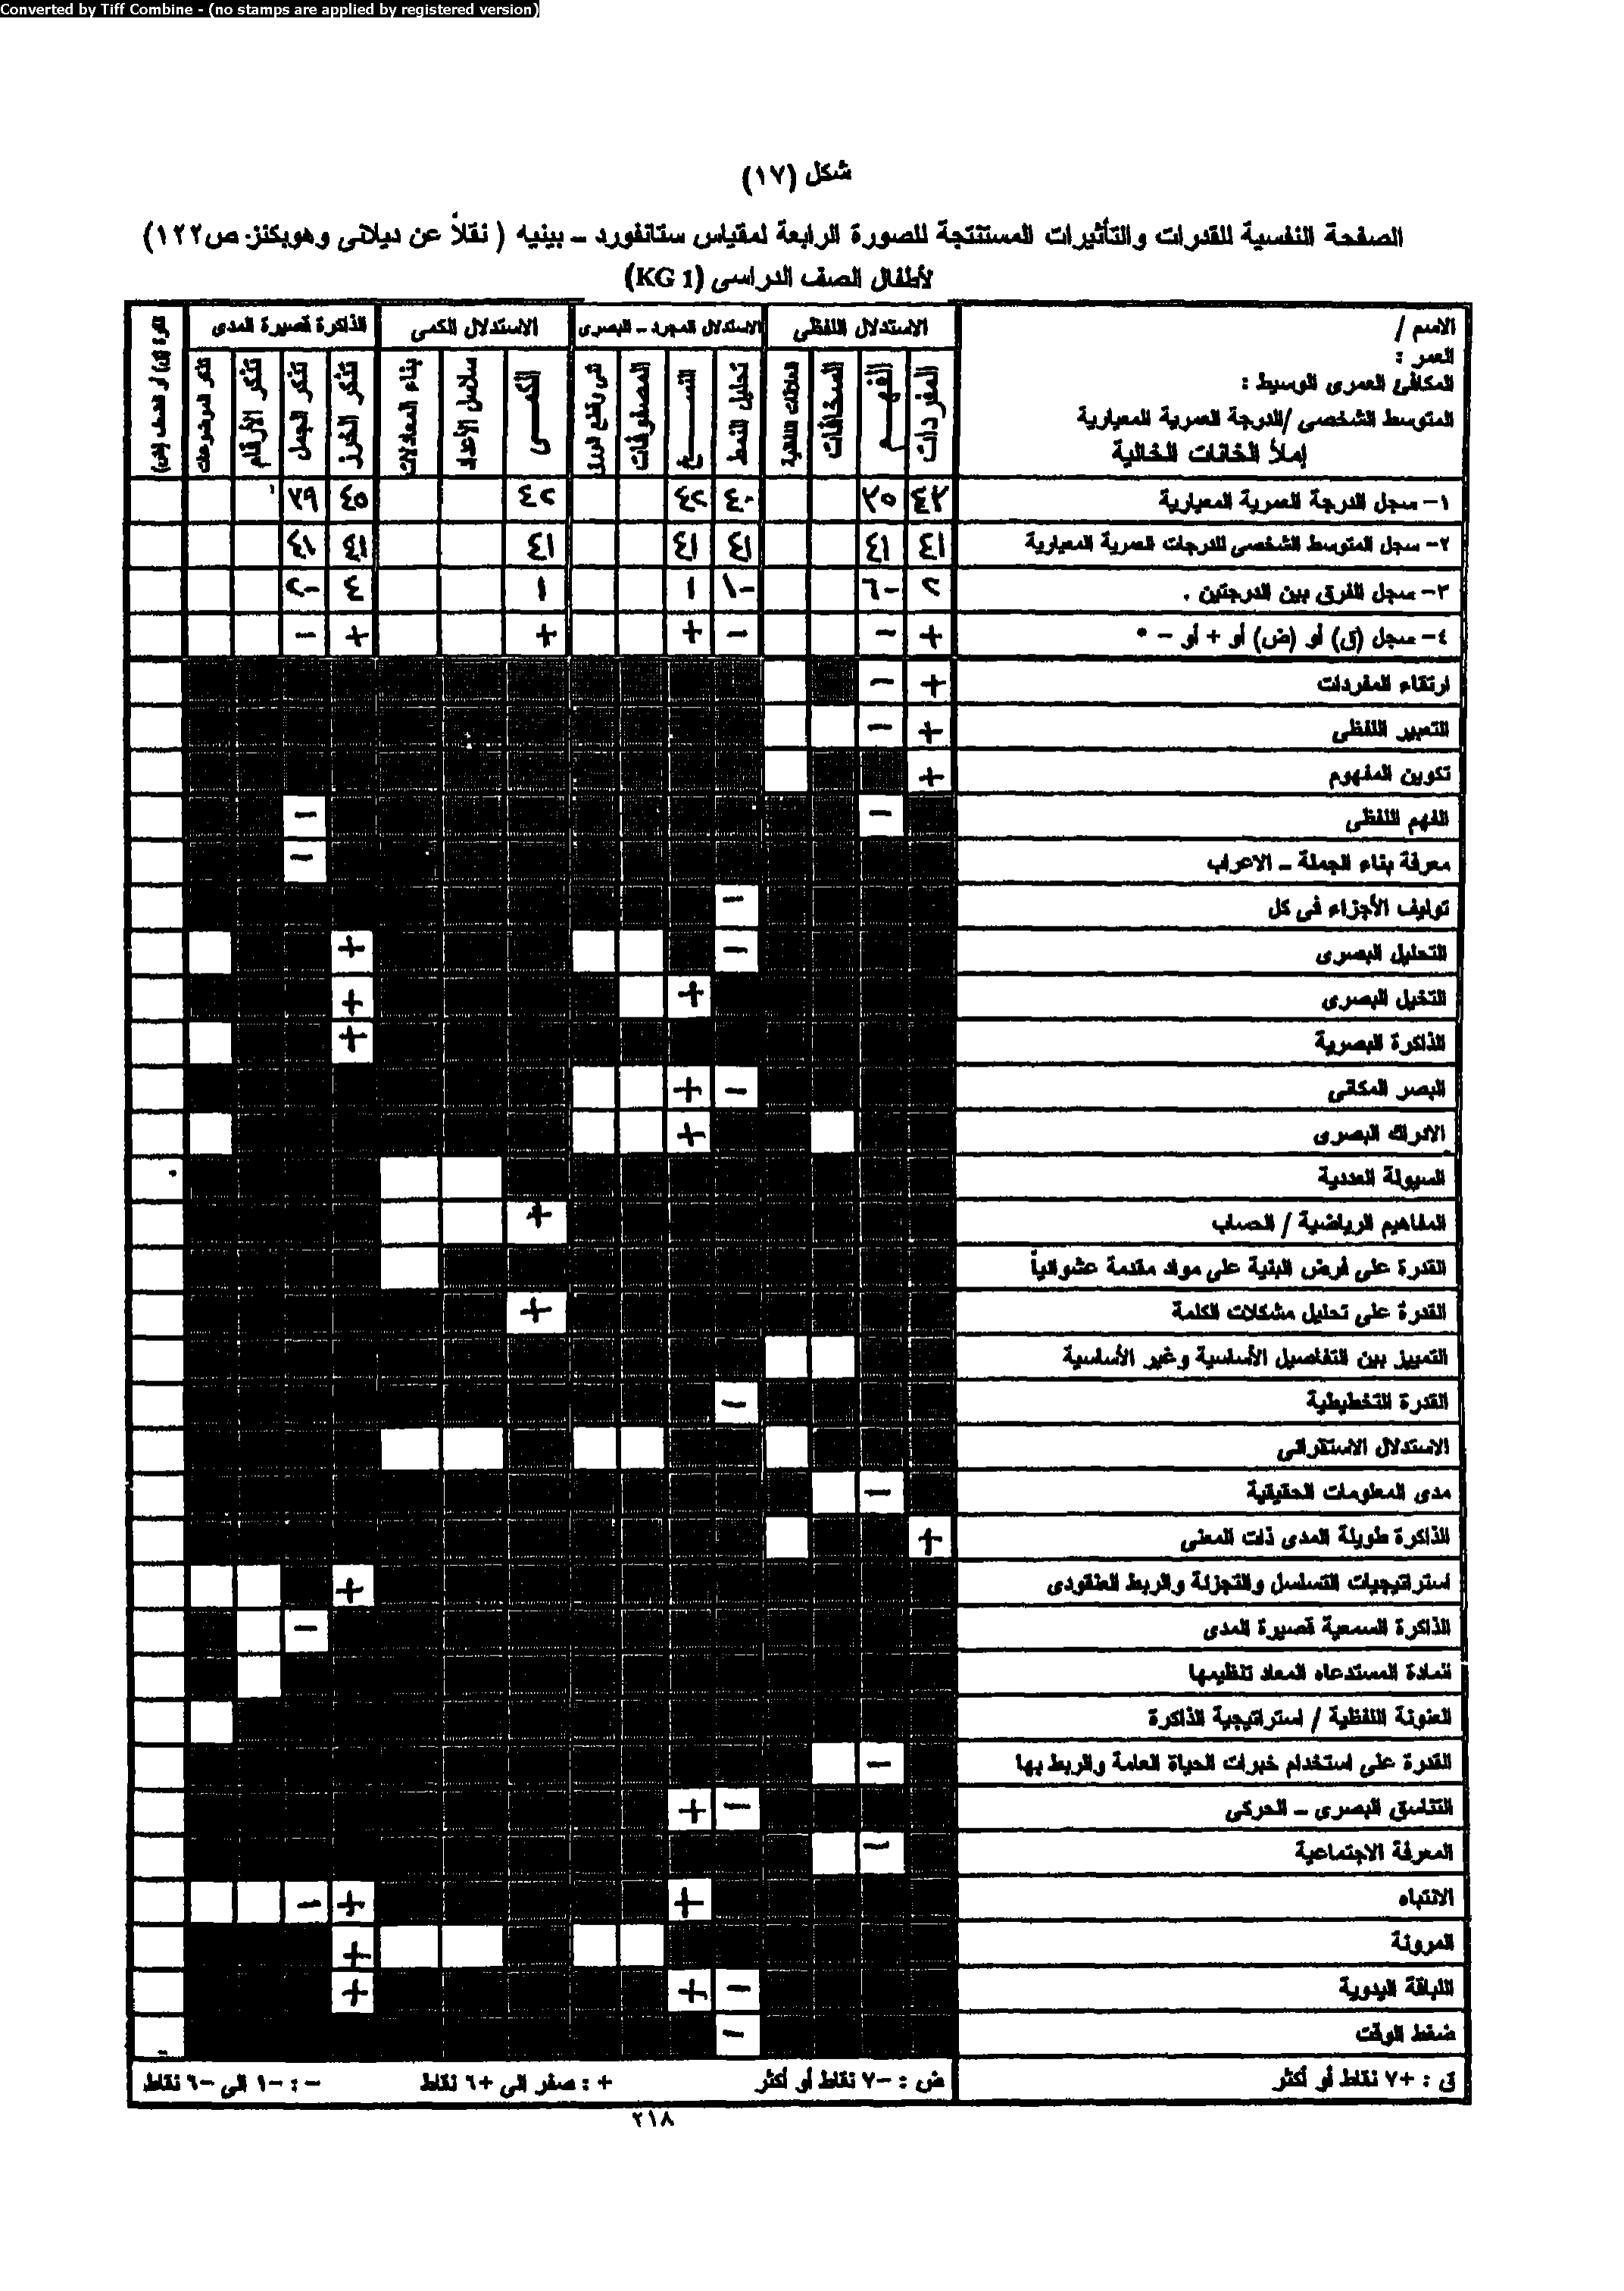 Converted by Tiff Combine - (no stamps are applied by registered version)
شكل (١٧)
الصفحة النفسية للقدرات والتأثيرات المستنتجة للصورة الرابعة لمقياس ستانفورد – بينيه ( نقلاً عن ديلانى وهوبكنز. ص١٢٢)
لأطفال الصف الدراسى (KG 1)
الاسم /
العمر :
المكافئ العمرى الوسيط :
المتوسط الشخصى /الدرجة العمرية المعيارية
إملأ الخانات الخالية
الاستدلال اللفظى الاستدلال المجرد – البصرى الاستدلال الكمى الذاكرة قصيرة المدى
المفردات الفهم السخافات العلاقات اللفظية تحليل النمط النسخ المصفوفات ثنى وقطع الورق الكمى سلاسل الأعداد بناء المعادلات تذكر الخرز تذكر الجمل تذكر الأرقام تذكر الموضوعات
١- سجل الدرجة العمرية المعيارية ٤٣ ٣٥ ٤٠ ٤٢ ٤٢ ٤٥ ٣٩
٢- سجل المتوسط الشخصى للدرجات العمرية المعيارية ٤١ ٤١ ٤١ ٤١ ٤١ ٤١ ٤١
٣- سجل الفرق بين الدرجتين . ٢ -٦ -١ ١ ١ ٤ -٢
٤- سجل (ق) أو (ض) أو + أو – * + – – + + + –
ارتقاء المفردات + –
التعبير اللفظى + –
تكوين المفهوم +
الفهم اللفظى – –
معرفة بناء الجملة – الاعراب –
توليف الأجزاء فى كل –
التحليل البصرى – +
التخيل البصرى + +
الذاكرة البصرية +
البصر المكانى – +
الادراك البصرى +
السيولة العددية
المفاهيم الرياضية / الحساب +
القدرة على فرض البنية على مواد مقدمة عشوائياً
القدرة على تحليل مشكلات الكلمة +
التمييز بين التفاصيل الأساسية وغير الأساسية
القدرة التخطيطية –
الاستدلال الاستقرائى
مدى المعلومات الحقيقية –
الذاكرة طويلة المدى ذات المعنى +
استراتيجيات التسلسل والتجزئة والربط العنقودى +
الذاكرة السمعية قصيرة المدى –
المادة المستدعاه المعاد تنظيمها
العنونة اللفظية / استراتيجية الذاكرة
القدرة على استخدام خبرات الحياة العامة والربط بها –
التناسق البصرى – الحركى – +
المعرفة الاجتماعية –
الانتباه + + –
المرونة +
اللباقة اليدوية – + +
ضغط الوقت –
ق : +٧ نقاط أو أكثر ض : –٧ نقاط أو أكثر + : صفر الى +٦ نقاط – : –١ الى –٦ نقاط
٢١٨